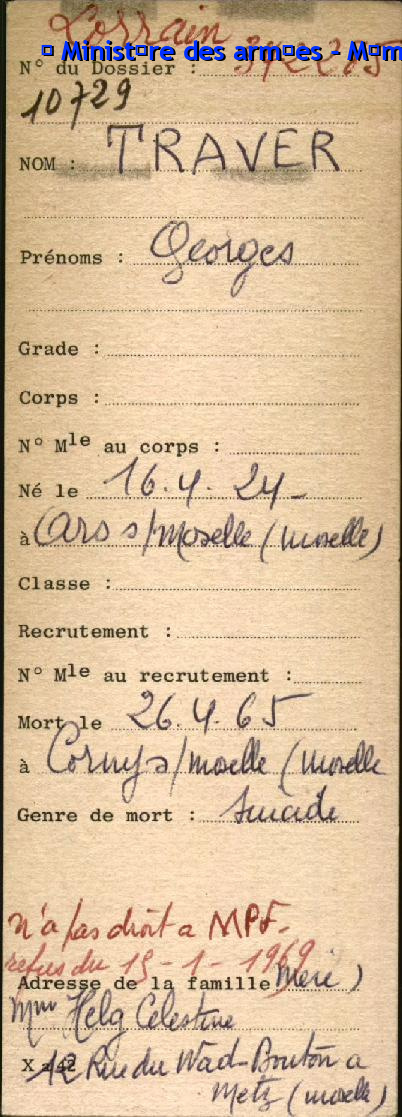 Lorrain
¤ Minist¤re des arm¤es - M¤m
N° du Dossier :
10729
NOM : TRAVER
Prénoms : Georges
Grade :
Corps :
N° Mle au corps :
Né le 16.4.24-
à Ars s/Moselle (Moselle)
Classe :
Recrutement :
N° Mle au recrutement :
Mort le 26.4.65
à Corny s/moselle (moselle
Genre de mort : Suicide
n'a pas droit a MPF.
refus du 15-1-1969
Adresse de la famille Mère)
Mme Helg Celestine
12 Rue du Wad-Bouton a
Metz (moselle)